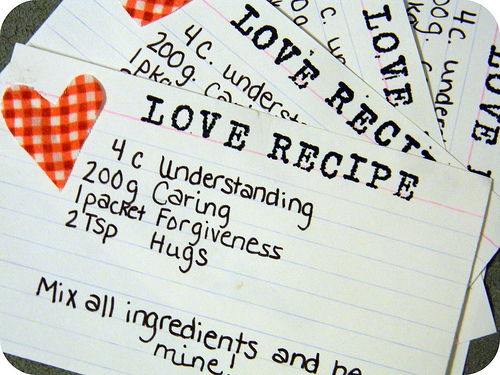 LOVE RECIPE
4 c Understanding
200g Caring
1 packet Forgiveness
2 Tsp Hugs
Mix all ingredients and be
mine!
LOVE RECI
4 c. underst
200g. Car
1pke
LOVE
LOVE
4 c. under